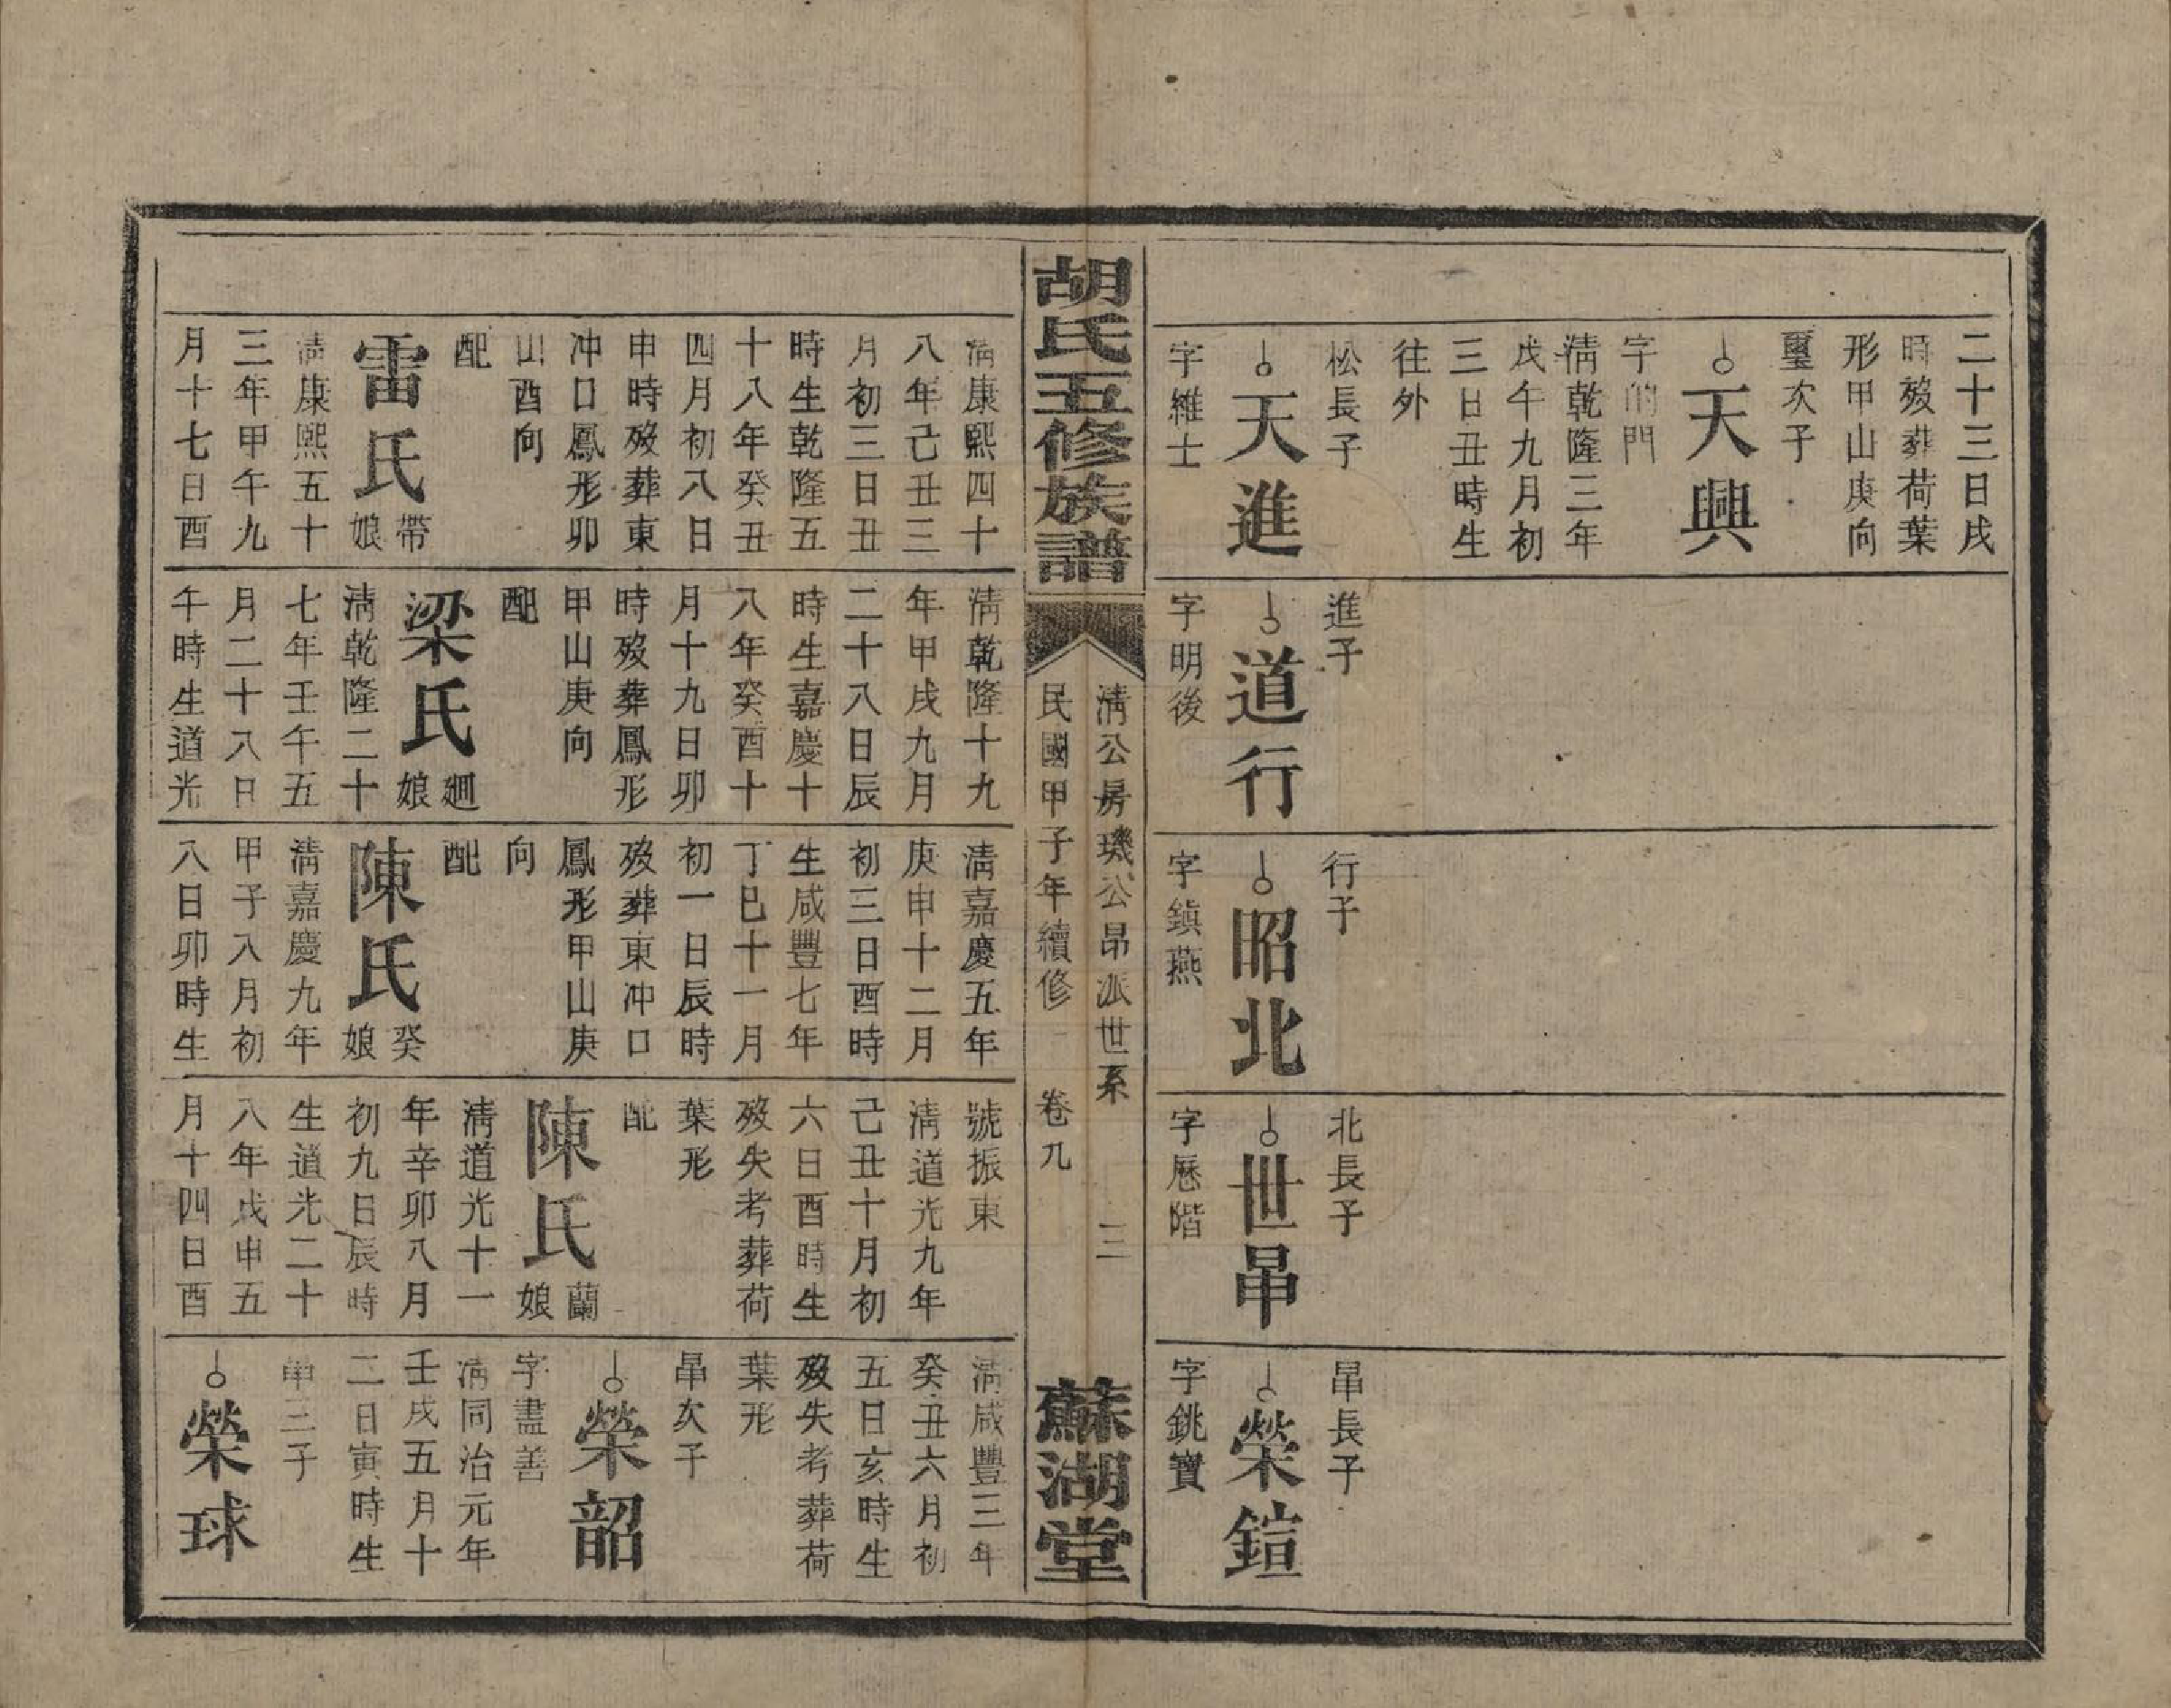 二十三日戌
時歿葬荷葉
形甲山庚向
璽次子
天興
字的門
淸乾隆三年
戊午九月初
三日丑時生
往外
松長子
天進
字維士
進子
道行
字明後
行子
昭北
字鎮燕
北長子
世帠
字懸階
帠長子
榮鍹
字銚寶
胡氏五修族譜
淸公房璣公昻派世系
三
民國甲子年續修
卷九
蘇湖堂
淸康熙四十
八年己丑三
月初三日丑
時生乾隆五
十八年癸丑
四月初八日
申時歿葬東
冲口鳳形卯
山酉向
配
雷氏帶娘
淸康熙五十
三年甲午九
月十七日酉
淸乾隆十九
年甲戌九月
二十八日辰
時生嘉慶十
八年癸酉十
月十九日卯
時歿葬鳳形
甲山庚向
配
梁氏廻娘
淸乾隆二十
七年壬午五
月二十八日
午時生道光
淸嘉慶五年
庚申十二月
初三日酉時
生咸豐七年
丁巳十一月
初一日辰時
歿葬東冲口
鳳形甲山庚
向
配
陳氏癸娘
淸嘉慶九年
甲子八月初
八日卯時生
號振東
淸道光九年
己丑十月初
六日酉時生
歿失考葬荷
葉形
配
陳氏蘭娘
淸道光十一
年辛卯八月
初九日辰時
生道光二十
八年戊申五
月十四日酉
淸咸豐三年
癸丑六月初
五日亥時生
歿失考葬荷
葉形
帠次子
榮韶
字盡善
淸同治元年
壬戌五月十
二日寅時生
帠三子
榮球